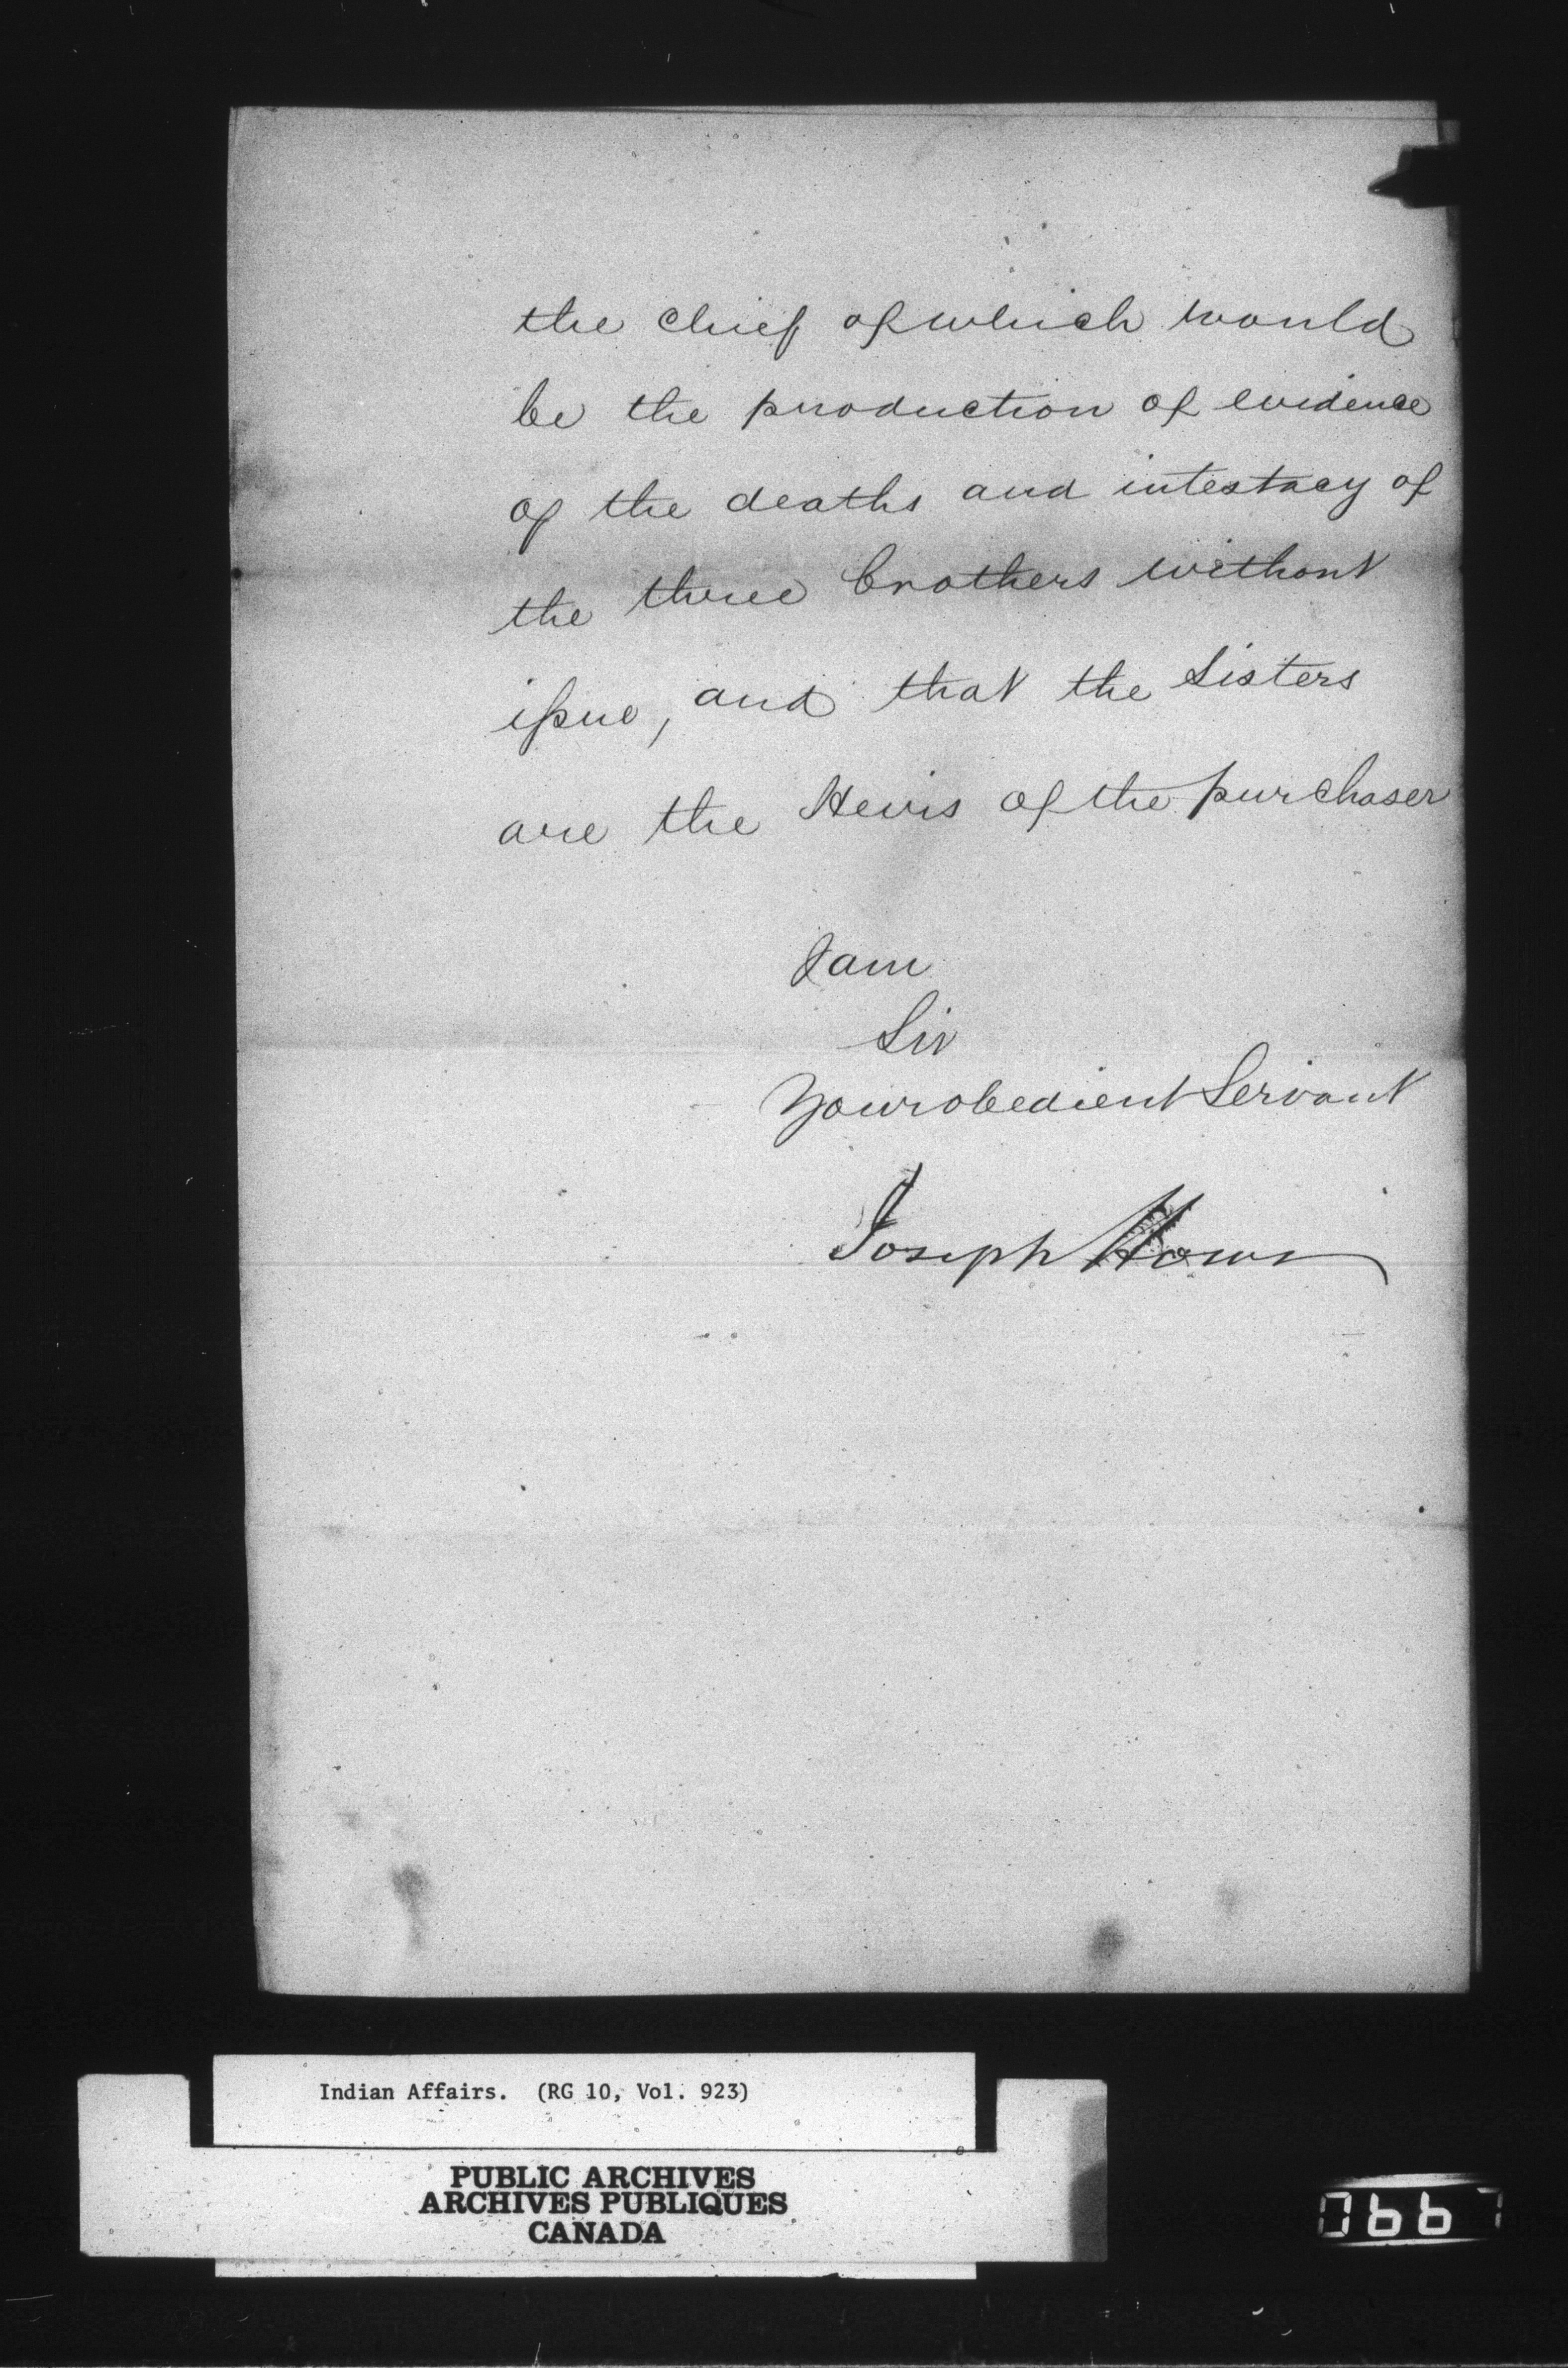 the chief of which would
be the production of evidence
of the deaths and intestacy of
the three brothers without
issue, and that the Sisters
are the Heirs of the purchaser
I am
Sir
Your obedient Servant
Joseph Howe
Indian Affairs. (RG 10, Vol. 923)
PUBLIC ARCHIVES
ARCHIVES PUBLIQUES
CANADA
0667